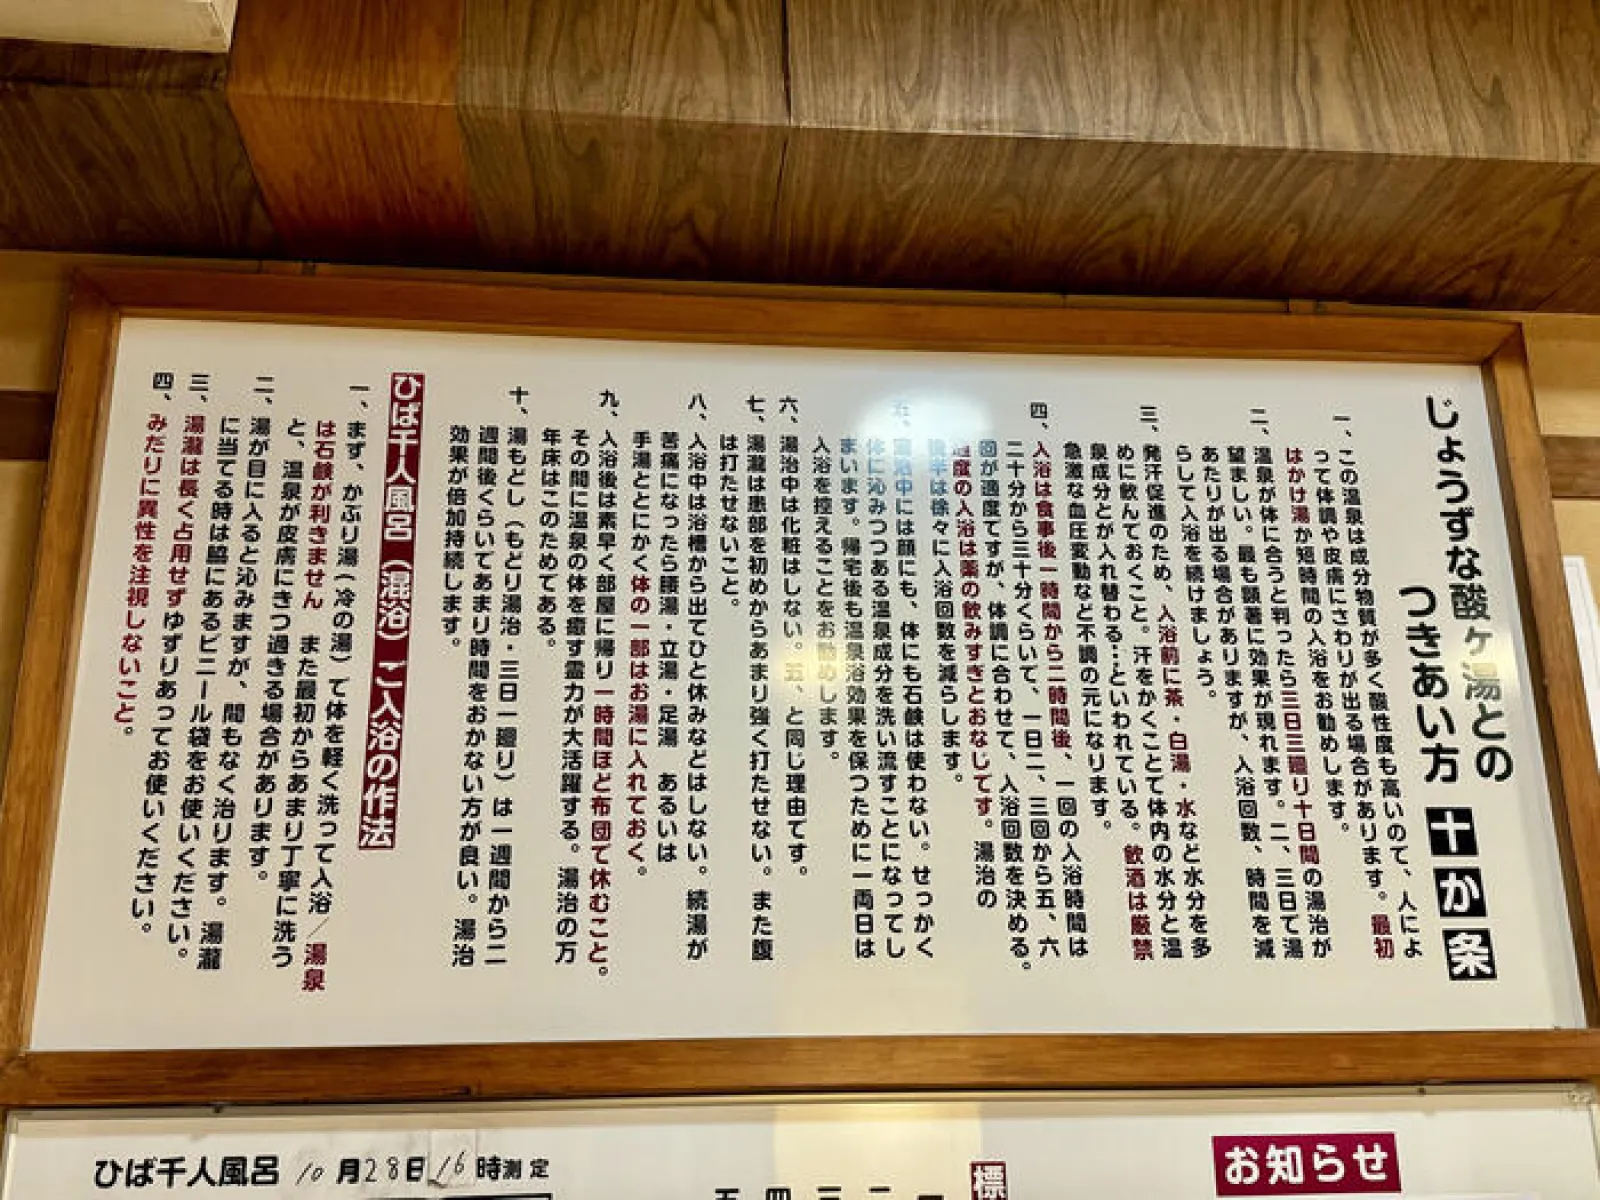 じょうずな酸ヶ湯との
つきあい方 十か条
一、この温泉は成分物質が多く酸性度も高いので、人によ
って体調や皮膚にさわりが出る場合があります。最初
はかけ湯か短時間の入浴をお勧めします。
二、温泉が体に合うと判ったら三日三廻り十日間の湯治が
望ましい。最も顕著に効果が現れます。二、三日で湯
あたりが出る場合がありますが、入浴回数、時間を減
らして入浴を続けましょう。
三、発汗促進のため、入浴前に茶・白湯・水など水分を多
めに飲んでおくこと。汗をかくことで体内の水分と温
泉成分とが入れ替わる…といわれている。飲酒は厳禁
急激な血圧変動など不調の元になります。
四、入浴は食事後一時間から二時間後、一回の入浴時間は
二十分から三十分くらいで、一日二、三回から五、六
回が適度ですが、体調に合わせて、入浴回数を決める。
過度の入浴は薬の飲みすぎとおなじです。湯治の
後半は徐々に入浴回数を減らします。
五、湯治中には顔にも、体にも石鹸は使わない。せっかく
体に沁みつつある温泉成分を洗い流すことになってし
まいます。帰宅後も温泉浴効果を保つために一両日は
入浴を控えることをお勧めします。
六、湯治中は化粧はしない。五、と同じ理由です。
七、湯瀧は患部を初めからあまり強く打たせない。また腹
は打たせないこと。
八、入浴中は浴槽から出てひと休みなどはしない。続湯が
苦痛になったら腰湯・立湯・足湯 あるいは
手湯ととにかく体の一部はお湯に入れておく。
九、入浴後は素早く部屋に帰り一時間ほど布団で休むこと。
その間に温泉の体を癒す霊力が大活躍する。湯治の万
年床はこのためである。
十、湯もどし（もどり湯治・三日一廻り）は一週間から二
週間後くらいであまり時間をおかない方が良い。湯治
効果が倍加持続します。
ひば千人風呂（混浴）ご入浴の作法
一、まず、かぶり湯（冷の湯）で体を軽く洗って入浴／湯泉
は石鹸が利きません また最初からあまり丁寧に洗う
と、温泉が皮膚にきつ過ぎる場合があります。
二、湯が目に入ると沁みますが、間もなく治ります。湯瀧
に当てる時は脇にあるビニール袋をお使いください。
三、湯瀧は長く占用せずゆずりあってお使いください。
四、みだりに異性を注視しないこと。
ひば千人風呂 10月28日16時測定
標
一
二
三
四
五
お知らせ